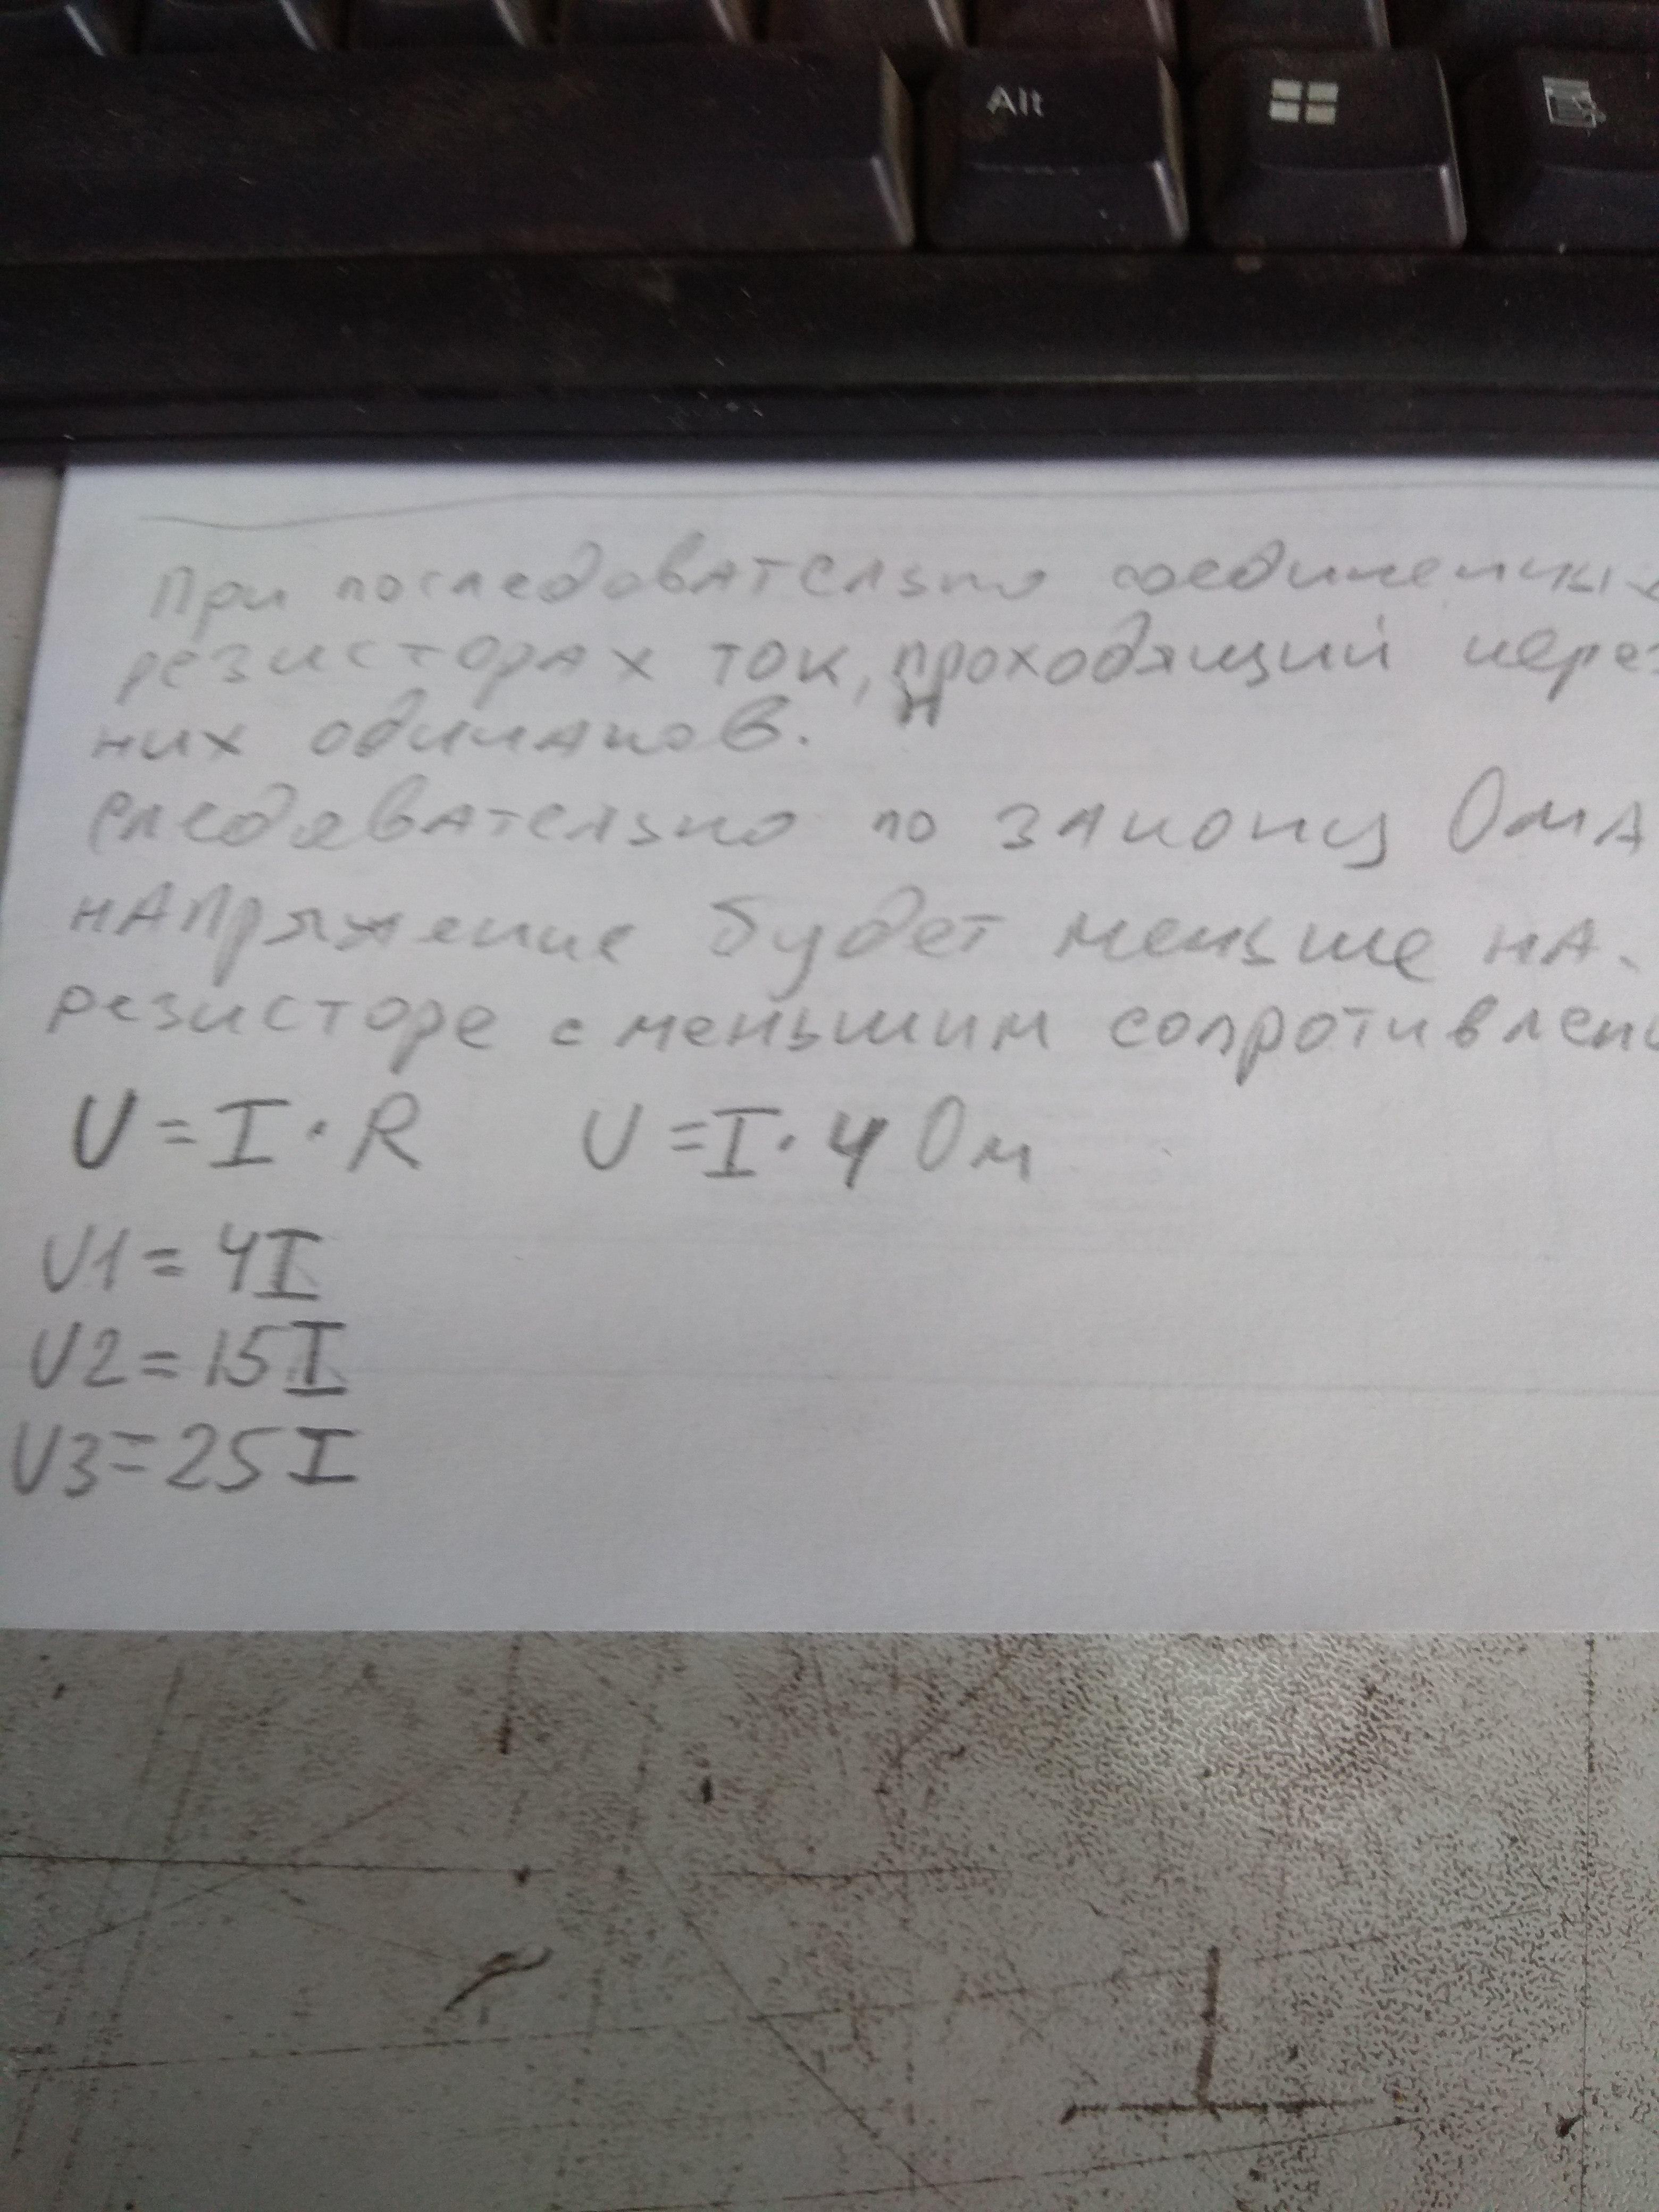 Alt
При последовательно соединенных
резисторах ток, проходящий через
них одинаков.
следовательно по закону Ома
напряжение будет меньше на
резисторе с меньшим сопротивлени
U = I · R U = I · 4 Ом
U1 = 4I
U2 = 15I
U3 = 25I